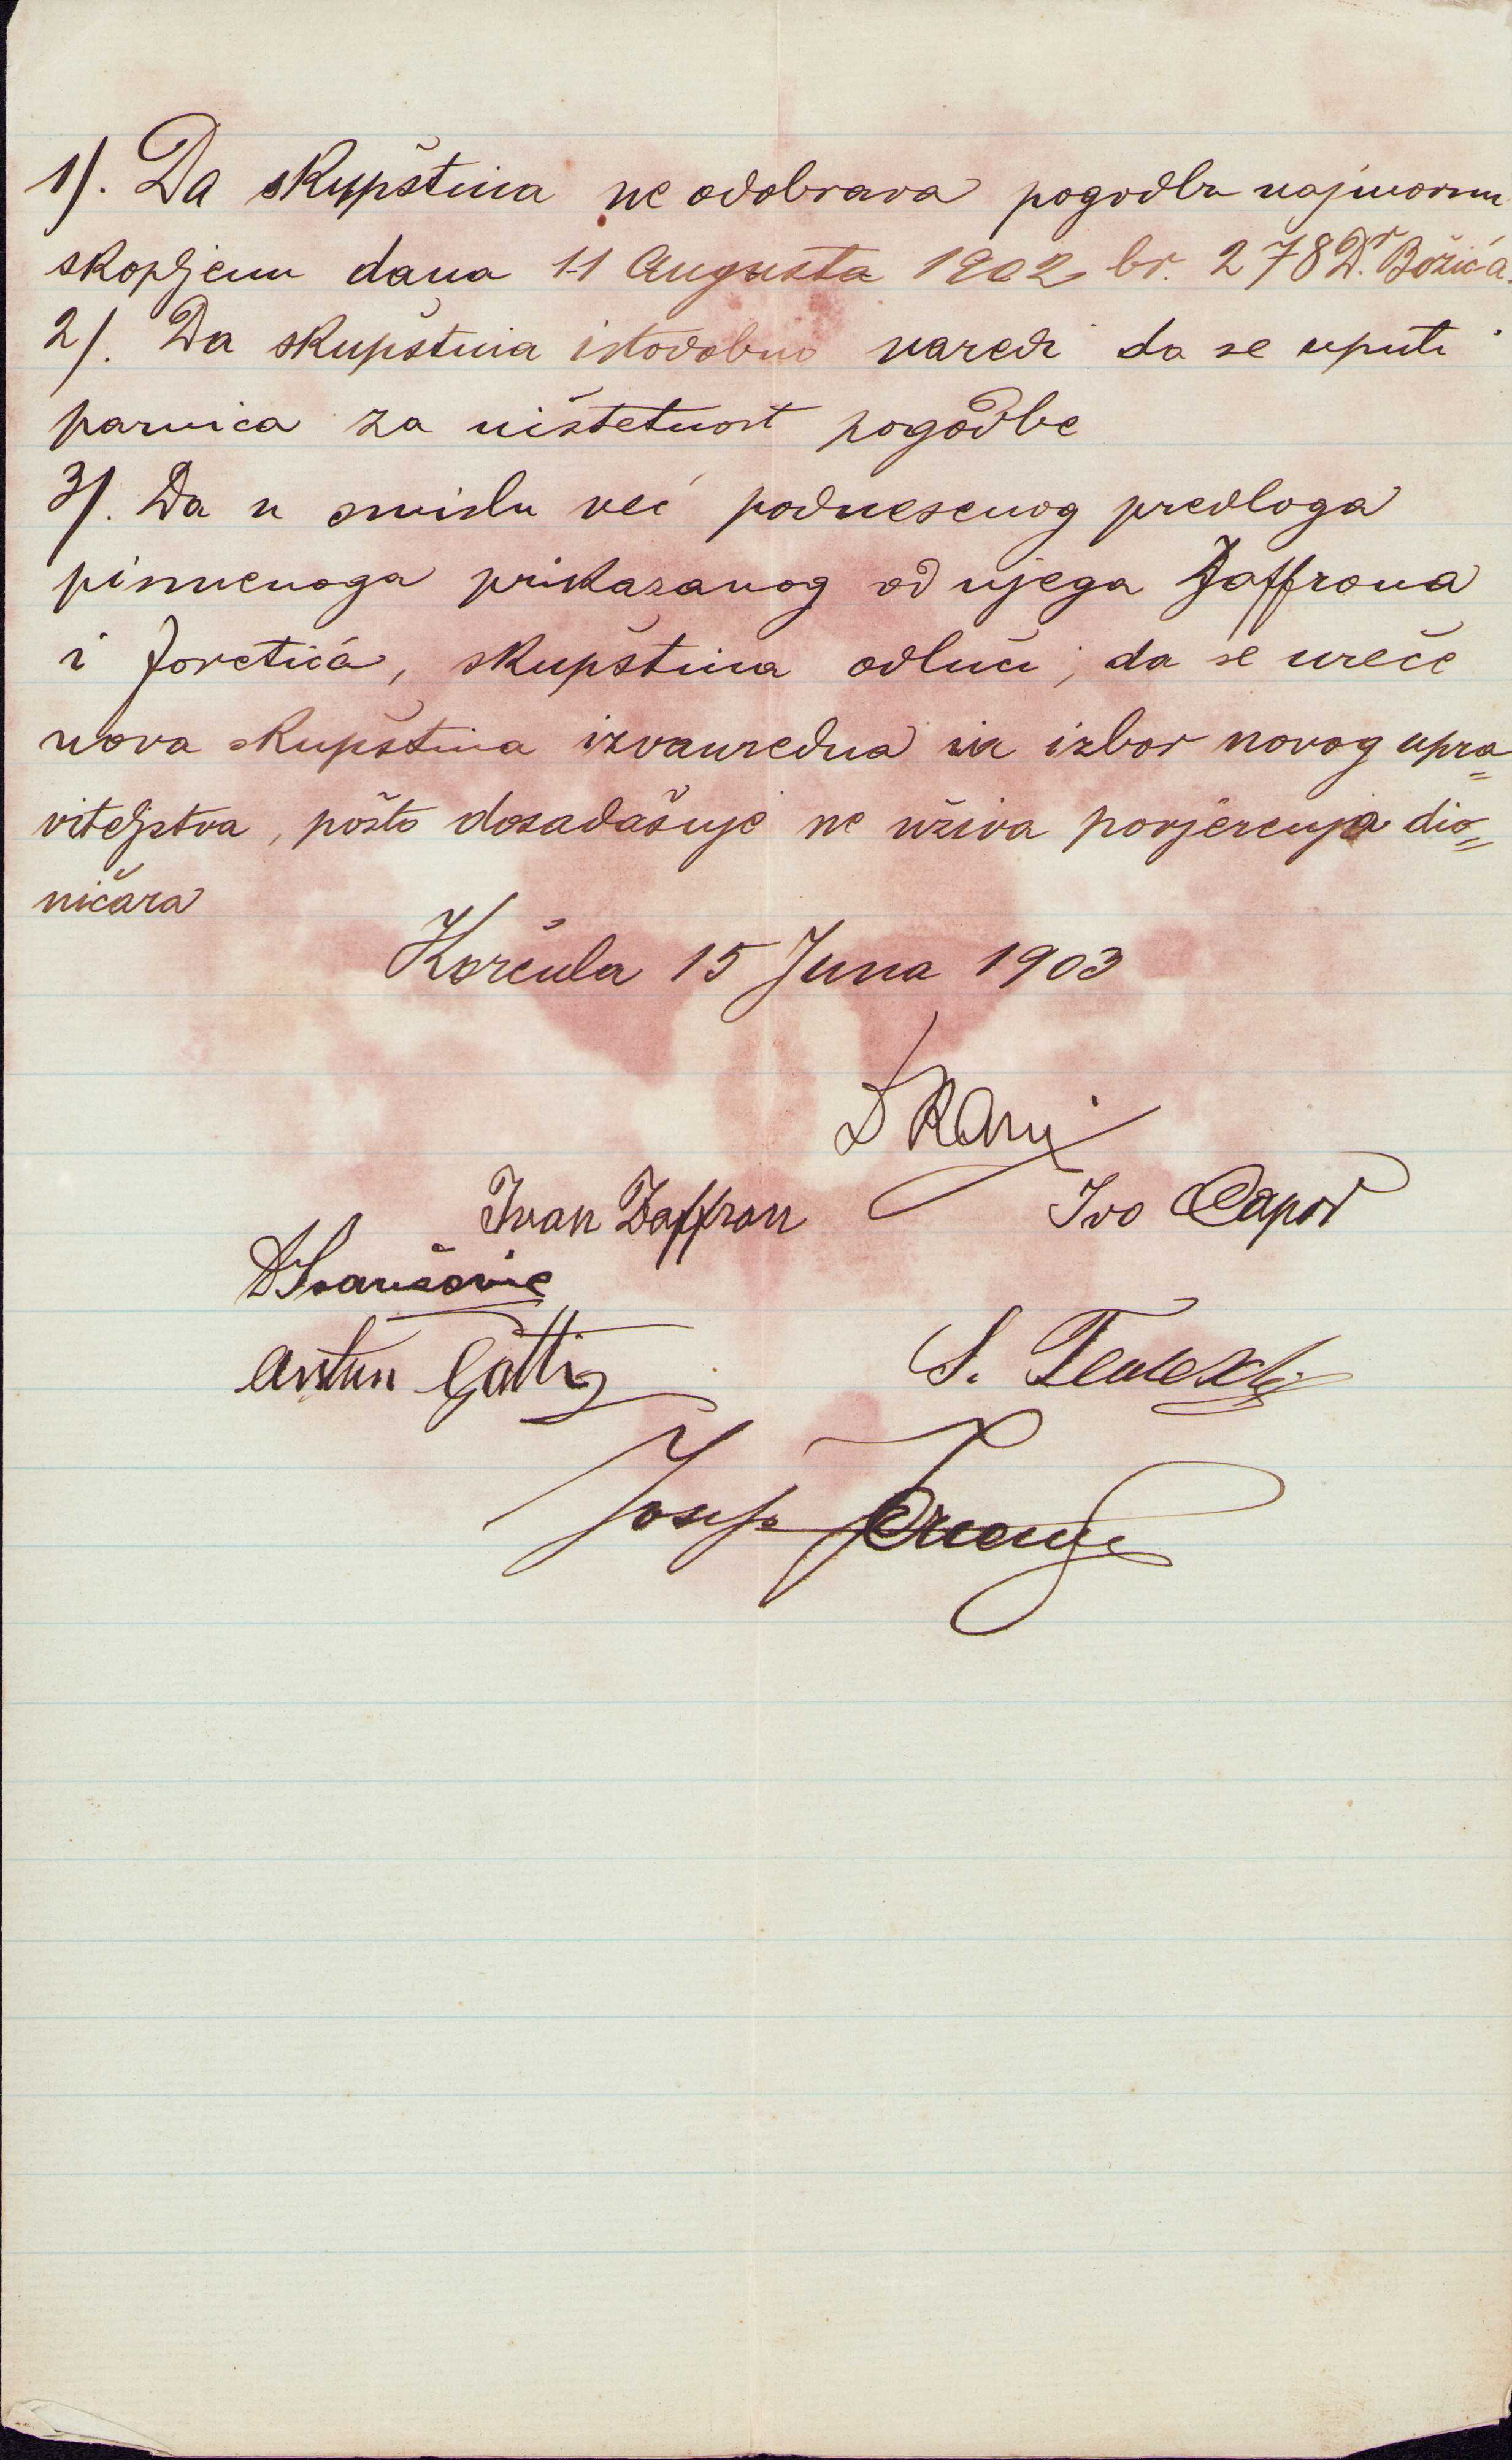 1). Da skupština ne odobrava pogodbu najmovnu
skopljenu dana 11 Augusta 1902 br. 278 D.r Božića.
2). Da skupština istodobno naredi da se uputi
parnica za ništetnost pogodbe
3). Da u smislu već podnesenog predloga
pismenoga prikazanog od njega Zaffrona
i Foretića, skupština odluči, da se ureče
nova skupština izvanredna za izbor novog upra=
viteljstva, pošto dosadašnje ne uživa povjerenja dio=
ničara
Korčula 15 Juna 1903
Ivan Zaffron
Ivo Capor
Antun Gatti
S.
Josip